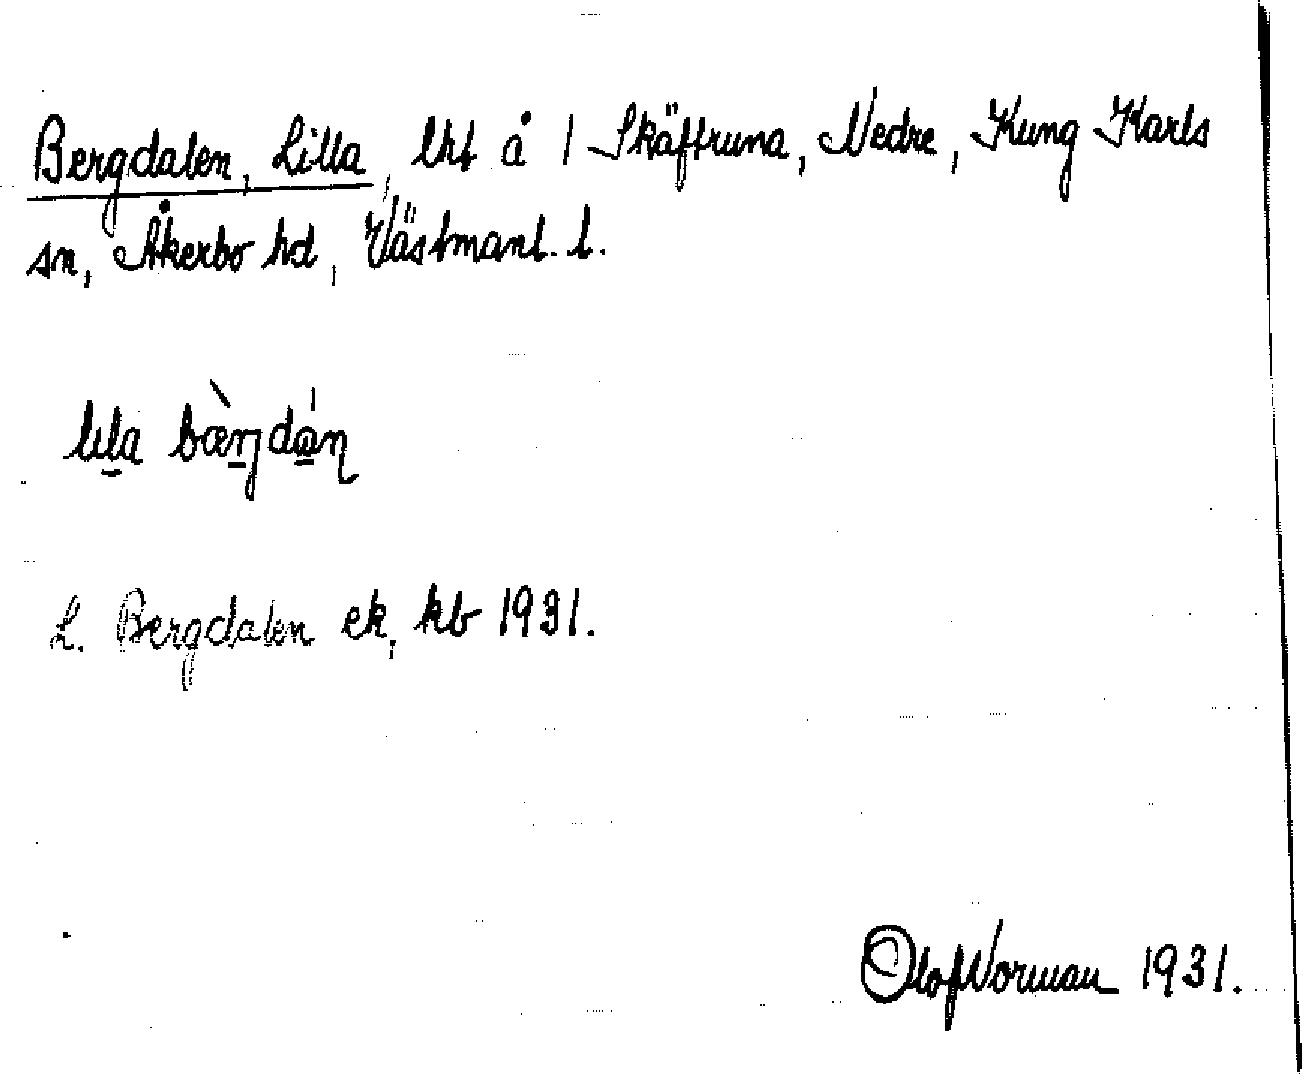 Bergdalen, Lilla, lht å 1 Skäftruna, Nedre, Kung Karls
sn, Åkerbo hd, Västmanl. l.
lıla bæ̀rjdán
L. Bergdalen ek, kb 1931.
Olof Norman 1931.